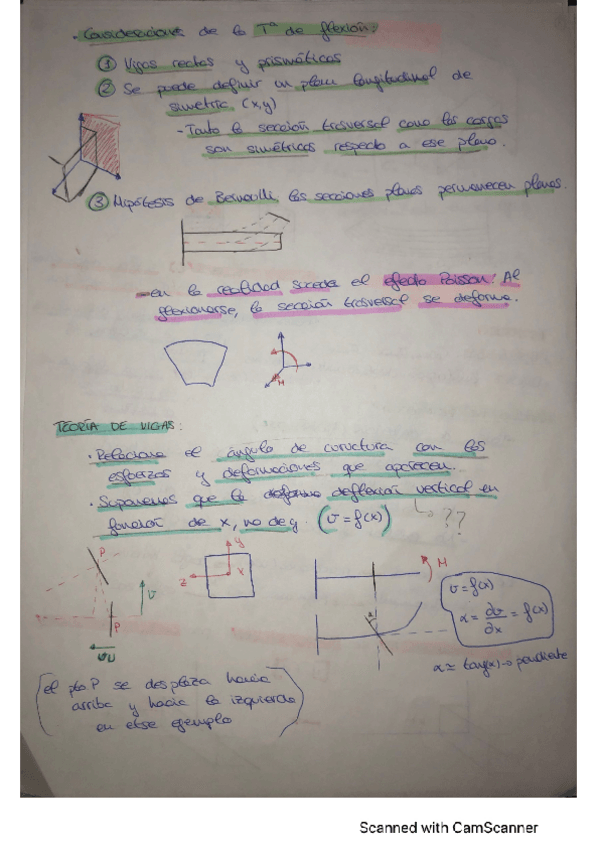 · Consideraciones de la Tª de flexión:
① Vigas rectas y prismáticas
② Se puede definir un plano longitudinal de
simetría (x,y)
- Tanto la sección trasversal como las cargas
son simétricas respecto a ese plano.
③ Hipótesis de Bernoulli, las secciones planas permanecen planas.
- en la realidad sucede el efecto Poisson: Al
flexionarse, la sección trasversal se deforma.
M
TEORÍA DE VIGAS:
· Relaciona el ángulo de curvatura con los
esfuerzos y deformaciones que aparecen.
· Suponemos que la deflexión vertical en
función de x, no de y. (v = f(x)) ??
P
P
v
u
y
z
x
M
α
v = f(x)
α = dv/∂x = f(x)
α ≃ tan(α) → pendiente
(el pto P se desplaza hacia
arriba y hacia la izquierda
en este ejemplo)
Scanned with CamScanner